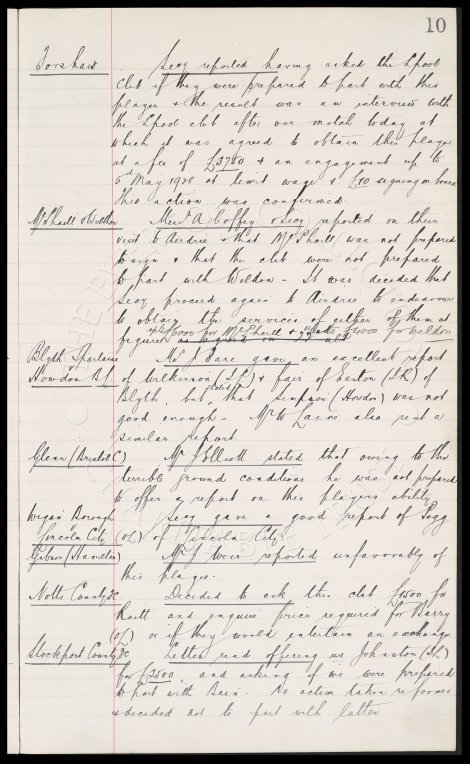 10
Forshaw Secy reported having asked the L'pool
club if they were prepared to part with this
player & the result was an interview with
the L'pool club after our match today at
which it was agreed to obtain this player
at a fee of £3750 & an engagement up to
5th May 1928 at limit wage & £10 signing on bonus
This action was confirmed
McPhail & Weldon Messrs A Coffey & Secy reported on their
visit to Airdrie & that McPhail was not prepared
to sign & that the club were not prepared
to part with Weldon - It was decided that
Secy proceed again to Airdrie to endeavour
to obtain the services of either of them at
figures
£6000 for McPhail & up to £4000 for Weldon
Blyth Spartans Mr J Care gave an excellent report
Howdon B.L. of Wilkinson (I.L) & Fair of Easton (I.R) of
Blyth, but that Simpson (Howdon) was not
good enough. Mr W also sent a
similar report.
Glenn (Bristol C) Mr J Elliott stated that owing to the
terrible ground conditions he was not prepared
to offer a report on this players ability
Wigan Borough Secy gave a good report of Pegg
Lincoln City (O.L) of Lincoln City.
Gibson (Hamilton) Mr J Weir reported unfavorably of
this player.
Notts County FC Decided to ask this club £1500 for
Raitt and enquire price required for Barry
(O.L) or if they would entertain an exchange
Stockport County FC Letter read offering us Johnston (I.L)
for £2500, and asking if we were prepared
to part with Bain. No action taken re former
& decided not to part with latter